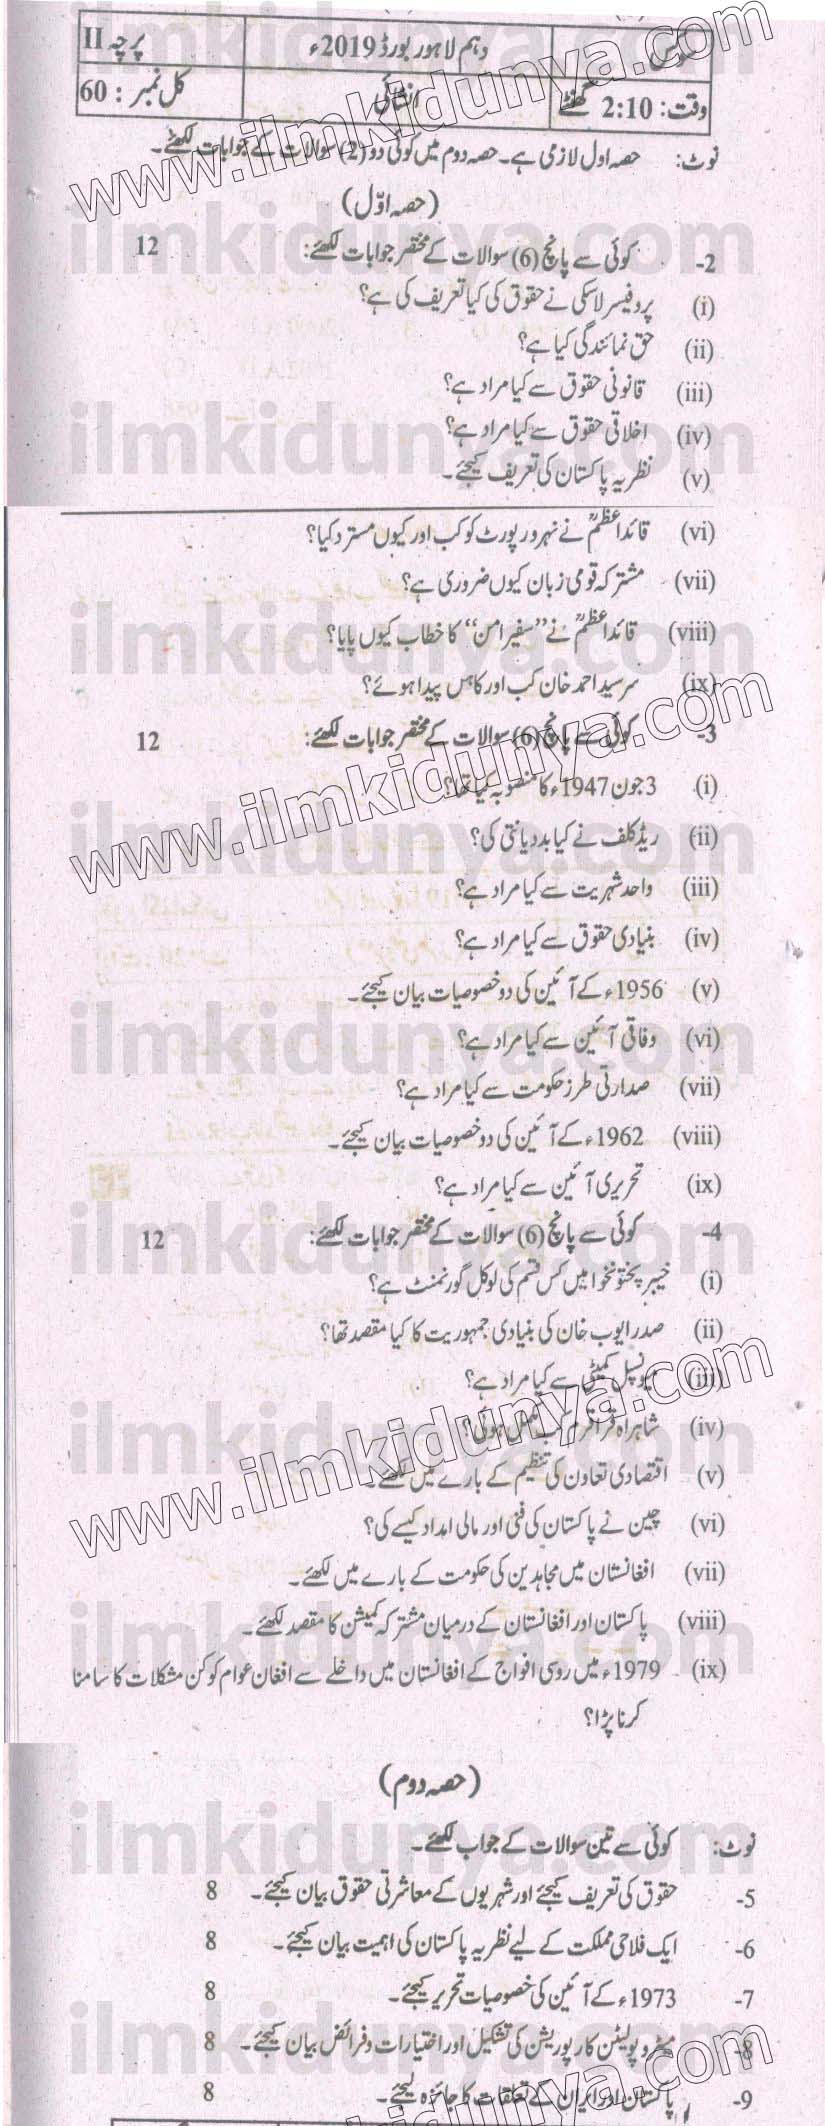 دہم لاہور بورڈ 2019ء پرچہ II
وقت: 2:10 گھنٹے انشائی کل نمبر: 60
نوٹ: حصہ اول لازمی ہے۔ حصہ دوم میں کوئی دو (2) سوالات کے جوابات لکھئے۔
(حصہ اوّل)
2- کوئی سے پانچ (6) سوالات کے مختصر جوابات لکھئے: 12
(i) پروفیسر لاسکی نے حقوق کی کیا تعریف کی ہے؟
(ii) حق نمائندگی کیا ہے؟
(iii) قانونی حقوق سے کیا مراد ہے؟
(iv) اخلاقی حقوق سے کیا مراد ہے؟
(v) نظریہ پاکستان کی تعریف کیجئے۔
(vi) قائداعظمؒ نے نہرو رپورٹ کو کب اور کیوں مسترد کیا؟
(vii) مشترکہ قومی زبان کیوں ضروری ہے؟
(viii) قائداعظمؒ نے ”سفیر امن“ کا خطاب کیوں پایا؟
(ix) سرسید احمد خان کب اور کاہس پیدا ہوئے؟
3- کوئی سے پانچ (6) سوالات کے مختصر جوابات لکھئے: 12
(i) 3 جون 1947ء کا منصوبہ کیا تھا؟
(ii) ریڈ کلف نے کیا بددیانتی کی؟
(iii) واحد شہریت سے کیا مراد ہے؟
(iv) بنیادی حقوق سے کیا مراد ہے؟
(v) 1956ء کے آئین کی دو خصوصیات بیان کیجئے۔
(vi) وفاقی آئین سے کیا مراد ہے؟
(vii) صدارتی طرز حکومت سے کیا مراد ہے؟
(viii) 1962ء کے آئین کی دو خصوصیات بیان کیجئے۔
(ix) تحریری آئین سے کیا مراد ہے؟
4- کوئی سے پانچ (6) سوالات کے مختصر جوابات لکھئے: 12
(i) خیبر پختونخوا میں کس قسم کی لوکل گورنمنٹ ہے؟
(ii) صدر ایوب خان کی بنیادی جمہوریت کا کیا مقصد تھا؟
(iii) میونسپل کمیٹی سے کیا مراد ہے؟
(iv) شاہراہ قراقرم کب مکمل ہوئی؟
(v) اقتصادی تعاون کی تنظیم کے بارے میں لکھئے۔
(vi) چین نے پاکستان کی فنی اور مالی امداد کیسے کی؟
(vii) افغانستان میں مجاہدین کی حکومت کے بارے میں لکھئے۔
(viii) پاکستان اور افغانستان کے درمیان مشترکہ کمیشن کا مقصد لکھئے۔
(ix) 1979ء میں روسی افواج کے افغانستان میں داخلے سے افغان عوام کو کن مشکلات کا سامنا
کرنا پڑا؟
(حصہ دوم)
نوٹ: کوئی سے تین سوالات کے جواب لکھئے۔
5- حقوق کی تعریف کیجئے اور شہریوں کے معاشرتی حقوق بیان کیجئے۔ 8
6- ایک فلاحی مملکت کے لیے نظریہ پاکستان کی اہمیت بیان کیجئے۔ 8
7- 1973ء کے آئین کی خصوصیات تحریر کیجئے۔ 8
8- میٹرو پولیٹن کارپوریشن کی تشکیل اور اختیارات و فرائض بیان کیجئے۔ 8
9- پاکستان اور ایران کے تعلقات کا جائزہ لیجئے۔ 8
www.ilmkidunya.com
www.ilmkidunya.com
www.ilmkidunya.com
www.ilmkidunya.com
ilmkidunya.com
ilmkidunya.com
ilmkidunya.com
ilmkidunya.com
ilmkidunya.com
ilmkidunya.com
ilmkidunya.com
ilmkidunya.com
ilmkidunya.com
ilmkidunya.com